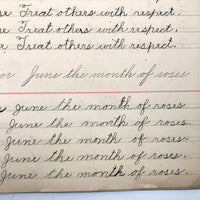 Treat others with respect.
Treat others with respect.
Treat others with respect.
June the month of roses
June the month of roses
June the month of roses.
June the month of roses.
June the month of roses.
June the month of roses.